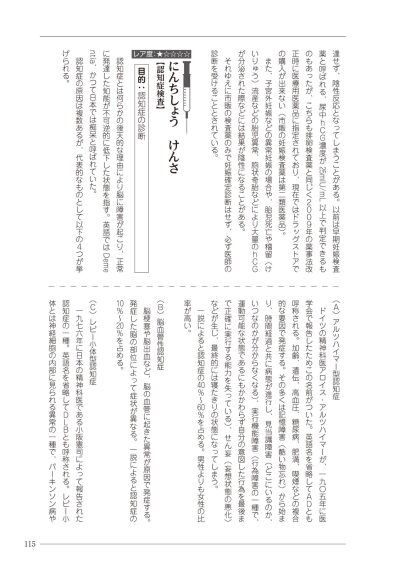 達せず、陰性反応となってしまうことがある。以前は早期妊娠検査
薬と呼ばれる、尿中hCG濃度が25mIU/mL以上で判定できるも
のもあったが、こちらも排卵検査薬と同じく2009年の薬事法改
正時に医療用医薬品に指定されており、現在ではドラッグストアで
の購入が出来ない（市販の妊娠検査薬は第二類医薬品）。
また、子宮外妊娠などの異常妊娠の場合や、胎児死亡や稽留（け
いりゅう）流産などの胎児異常、胞状奇胎などにより大量のhCG
が分泌された際などには結果が陰性になることがある。
それゆえに市販の検査薬のみで妊娠確定診断はせず、必ず医師の
診断を受けることとされている。
レア度:★☆☆☆☆
にんちしょう けんさ
【認知症検査】
目的:認知症の診断
認知症とは何らかの後天的な理由により脳に障害が起こり、正常
に発達した知能が不可逆的に低下した状態を指す。英語ではDeme
ntia。かつて日本では痴呆と呼ばれていた。
認知症の原因は複数あるが、代表的なものとして以下の4つが挙
げられる。
（A）アルツハイマー型認知症
ドイツの精神科医アロイス・アルツハイマーが、一九〇五年に医
学会で報告したためこの名前がついた。英語名を省略してADとも
呼称される。加齢、遺伝、高血圧、糖尿病、肥満、喫煙などの複合
的な要因で発症する。その多くは記憶障害（酷い物忘れ）から始ま
り、時間経過と共に病態が進行し、見当識障害（どこにいるのか、
いつなのかが分からなくなる）、実行機能障害（行為障害の一種で、
運動可能な状態であるにもかかわらず自分の意図した行為を最後ま
で正確に実行する能力を失っている）、せん妄（妄想状態の悪化）
などが生じ、最終的には寝たきりの状態になってしまう。
一説によると認知症の40%～60%を占める。男性よりも女性の比
率が高い。
（B）脳血管性認知症
脳梗塞や脳出血など、脳の血管に起きた異常が原因で発症する。
発症した脳の部位によって症状が異なる。一説によると認知症の
10%～20%を占める。
（C）レビー小体型認知症
一九七六年に日本の精神科医である小阪憲司によって報告された
認知症の一種。英語名を省略してDLBとも呼称される。レビー小
体とは神経細胞の内部に見られる異常の一種で、パーキンソン病や
115